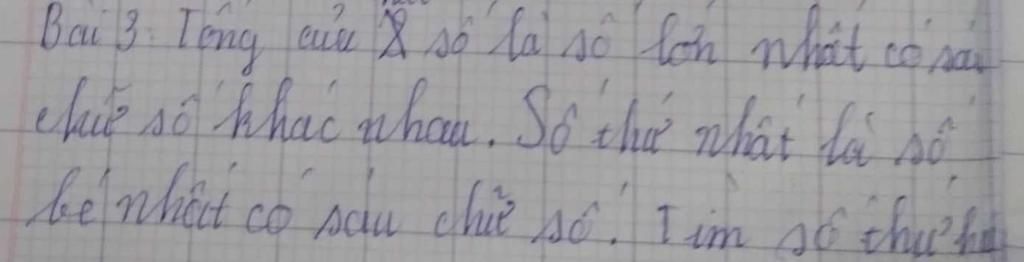 Bài 3: Tổng của số là số lớn nhất có sáu
chữ số khác nhau. Số thứ nhất là số
bé nhất có sáu chữ số. Tìm số thứ